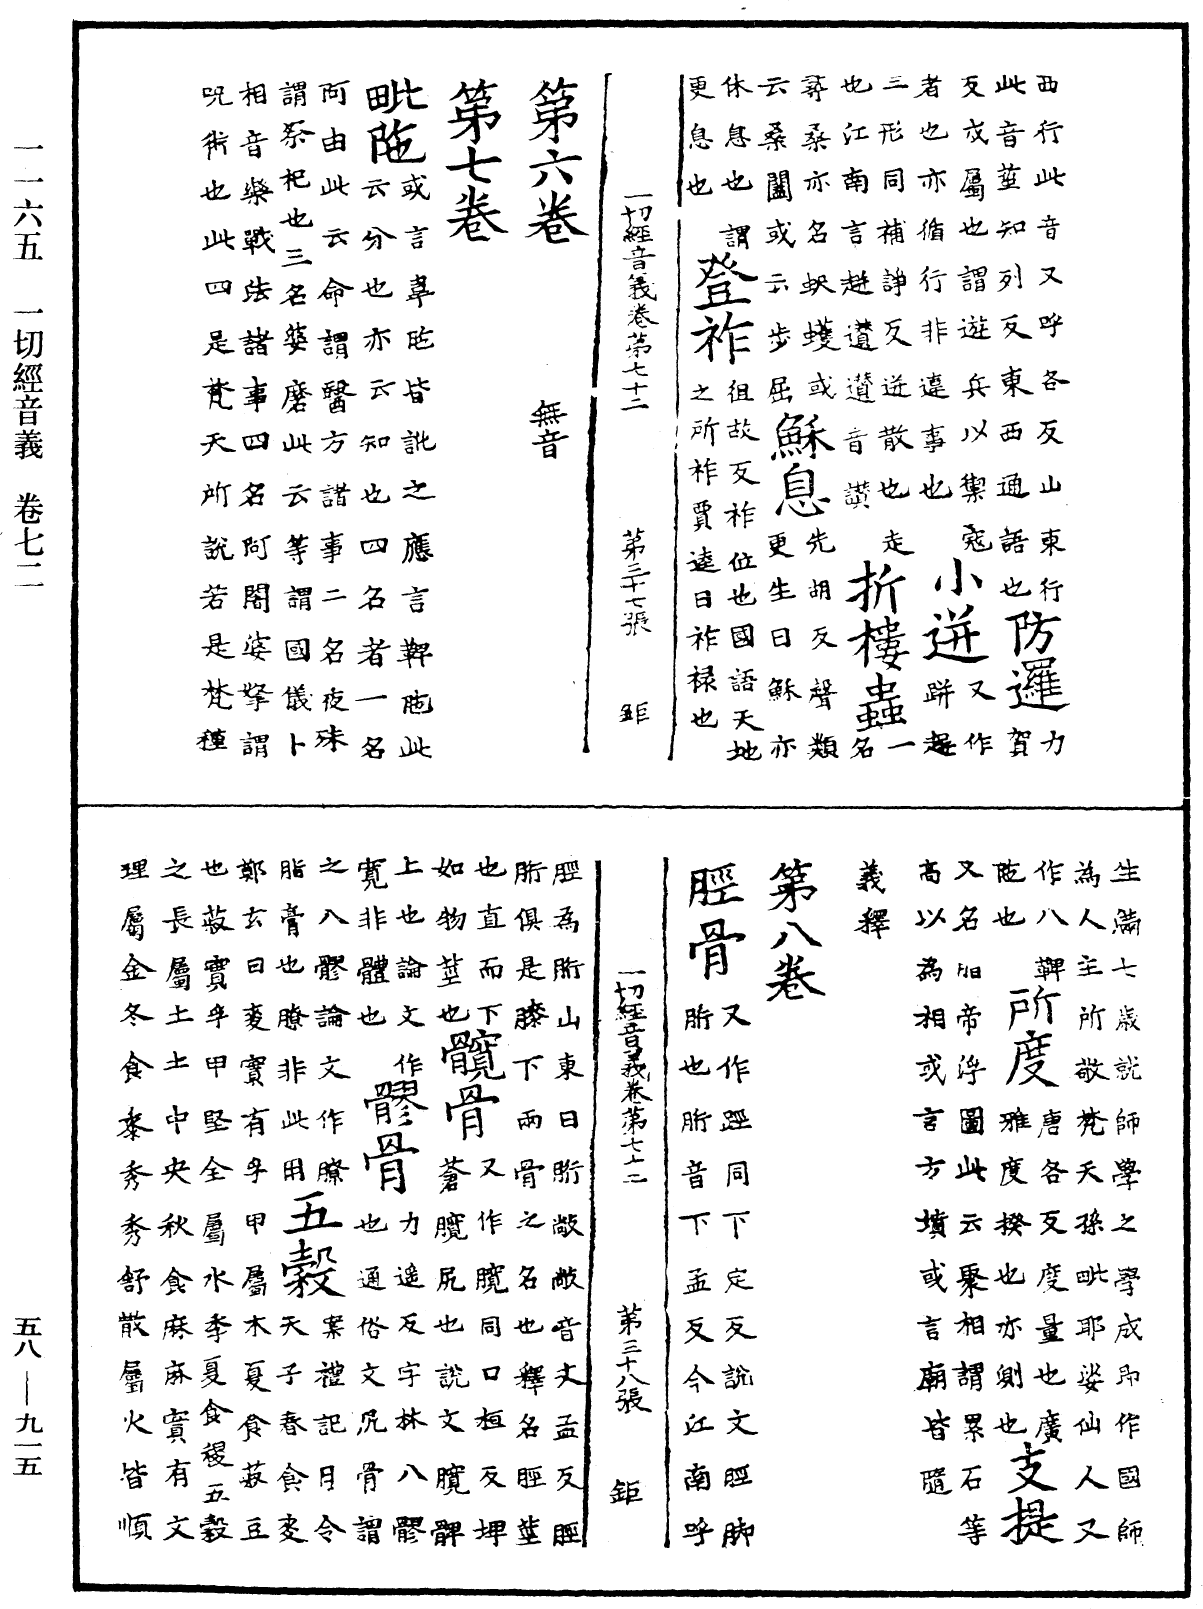 西行此音又呼各反山東行
此音莖知列反東西通語也防邏力賀
反戍屬也謂遊兵以禦寇
者也亦循行非違事也小迸又作跰趚
三形同補諍反迸散也走
也江南言趚䟃䟃音讃折樓蟲一名
尋桑亦名蚇蠖或
云桑闔或云步屈穌息先胡反聲類更生曰穌亦
休息也謂
更息也登祚徂故反祚位也國語天地之所祚賈逵曰祚祿也
一切經音義卷第七十二 第三十七張 鉅
第六卷 無音
第七卷
毗陁或言韋陁皆訛之應言鞞陁此云分也亦云知也四名者一名
阿由此云命謂醫方諸事二名夜殊
謂祭祀也三名娑磨此云等謂國儀卜
相音樂戰法諸事四名阿闥婆拏謂
呪術也此四是梵天所說若是梵種
生滿七歲就師學之學成即作國師
為人主所敬梵天孫毗耶娑仙人又
作八鞞
陁也所度唐各反度量也廣雅度揆也亦測也支提
又名脂帝浮圖此云聚相謂累石等
高以為相或言方墳或言廟皆隨
義釋
第八卷
脛骨又作踁同下定反說文脛脚胻也胻音下孟反今江南呼
一切經音義卷第七十二 第三十八張 鉅
脛為胻山東曰胻敞敞音丈孟反脛
胻俱是膝下兩骨之名也釋名脛莖
也直而下
如物莖也髖骨又作臗同口桓反埤蒼臗尻也說文臗髀
上也論文作
寬非體也髎骨力遥反字林八髎也通俗文尻骨謂
之八髎論文作膫案禮記月令
脂膏也膫非此用五穀天子春食麦
鄭玄曰麥實有孚甲屬木夏食菽豆
也菽實孚甲堅全屬水季夏食稷五穀
之長屬土土中央秋食麻麻實有文
理屬金冬食黍秀秀舒散屬火皆順
一一六五 一切經音義 卷七二
五八—九一五